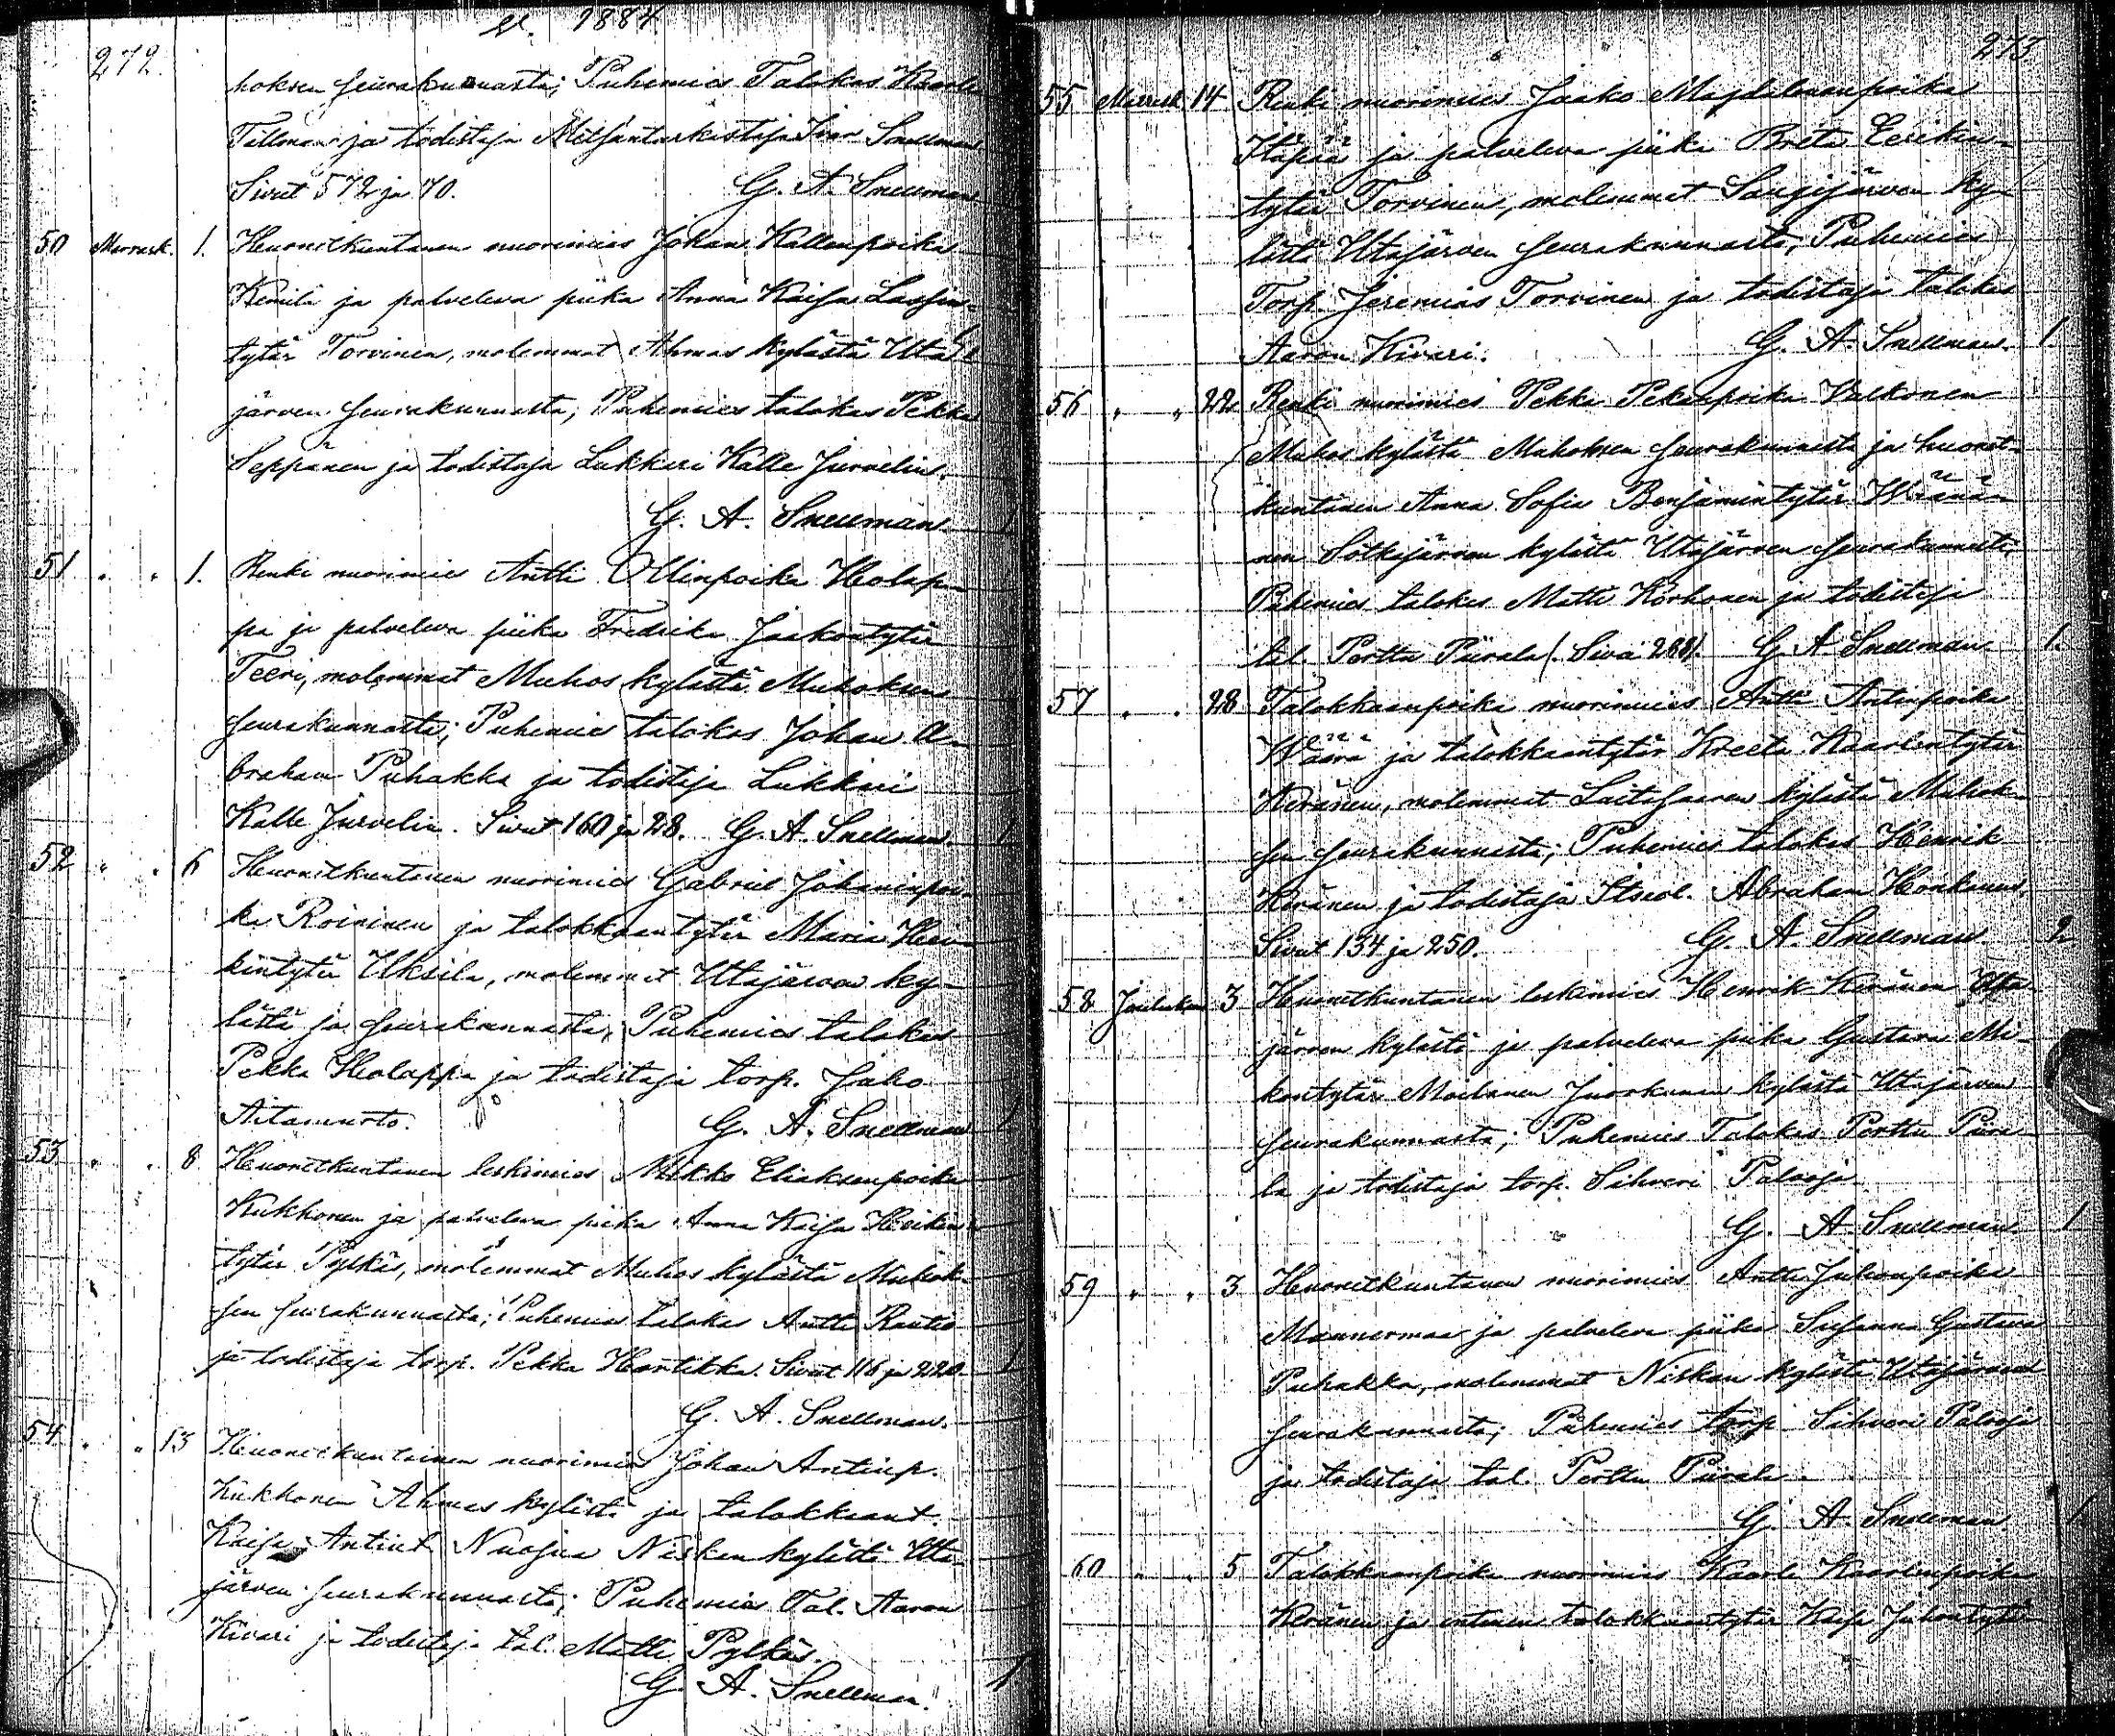 V. 1884
272.
hoksen seurakunnasta; Puhemies Talokas Kaarle
Tillman ja todistaja Metsäntarkastaja Ivar Snellman
Sivut 572 ja 70. G. A. Snellman
50 Marrask. 1. Huonetkuntanen nuorimies Johan Kallenpoika
Kemilä ja palveleva piika Anna Kaisa Lassin-
tytär Torvinen, molemmat Ahmas kylästä Uta-
järven seurakunnasta; Puhemies talokas Pekka
Seppänen ja todistaja Lukkari Kalle Jurvelin.
G. A. Snellman 1
51 " " 1. Renki nuorimies Antti Ollinpoika Holap-
pa ja palveleva piika Fredrika Jaakontytär
Teeri, molemmat Muhos kylästä Muhoksen
seurakunnasta; Puhemies talokas Johan A-
braham Puhakka ja todistaja Lukkari
Kalle Jurvelin. Sivut 160 ja 28. G. A. Snellman. 1
52 " " 6 Huonetkuntanen nuorimies Gabriel Johaninpoi-
ka Roininen ja talokkaantytär Maria Hen-
kintytär Uksila, molemmat Utajärven ky-
lästä ja seurakunnasta; Puhemies talokas
Pekka Holappa ja todistaja torp. Jako
Aitamurto. G. A. Snellman 1
53 " " 8. Huonetkuntanen leskimies Mikko Eliaksenpoika
Kukkonen ja palveleva piika Anna Kaisa Heikin-
tytär Pylkäs, molemmat Muhos kylästä Muhok-
sen seurakunnasta; Puhemies talokas Antti Rautio
ja todistaja torp. Pekka Hartikka. Sivut 116 ja 220. 1
G. A. Snellman.
54 " " 13 Huonetkuntainen nuorimies Johan Antinp.
Kukkonen Ahmas kylästä ja talokkaant.
Kaisa Antint. Nuojua Niskan kylästä Uta-
järven seurakunnasta; Puhemies Tal. Aaron
Kivari ja todistaja tal. Matti Pylkäs.
G. A. Snellman. 1
273
55 Marrask. 14 Renki nuorimies Jaako Magdalenanpoika
Itäpää ja palveleva piika Breta Eerikin-
tytär Torvinen, molemmat Sangijärven ky-
lästä Utajärven seurakunnasta; Puhemies
Torp. Jeremias Torvinen ja todistaja talokas
Aaron Kivari. G. A. Snellman. 1.
56 " " 22 Renki nuorimies Pekka Pekanpoika Valkonen
Muhos kylästä Muhoksen seurakunnasta ja huonet-
kuntanen Anna Sofia Benjamintytär Wäänä-
nen Sotkajärven kylästä Utajärven seurakunnasta;
Puhemies talokas Matti Korhonen ja todistaja
tal. Perttu Piirala (Sivu 288). G. A. Snellman 1.
57 " " 28 Talokkaanpoika nuorimies Antti Antinpoika
Wäärä ja talokkaantytär Kreeta Kaarlentytär
Keränen, molemmat Laitasaaren kylästä Muhok-
sen seurakunnasta; Puhemies talokas Henrik
Keränen ja todistaja Itseol. Abraham Honkanen.
Sivut 134 ja 250. G. A. Snellman 2
58 Jouluk. 3 Huonetkuntanen leskimies Henrik Keränen Uta-
järven kylästä ja palveleva piika Gustava Mi-
kontytär Moilanen Juorkunan kylästä Utajärven
seurakunnasta; Puhemies Talokas Perttu Piira-
la ja todistaja torp. Sihveri Palooja
G. A. Snellman. 1
59 " " 3 Huonetkuntanen nuorimies Antti Juhonpoika
Mannermaa ja palveleva piika Susanna Gustava
Puhakka, molemmat Niskan kylästä Utajärven
seurakunnasta; Puhemies torp. Sihveri Palooja
ja todistaja tal. Perttu Piirala.
G. A. Snellman. 1
60 " " 5 Talokkaanpoika nuorimies Kaarle Kaarlenpoika
Keränen ja entinen talokkaantytär Kaisa Juhontytär